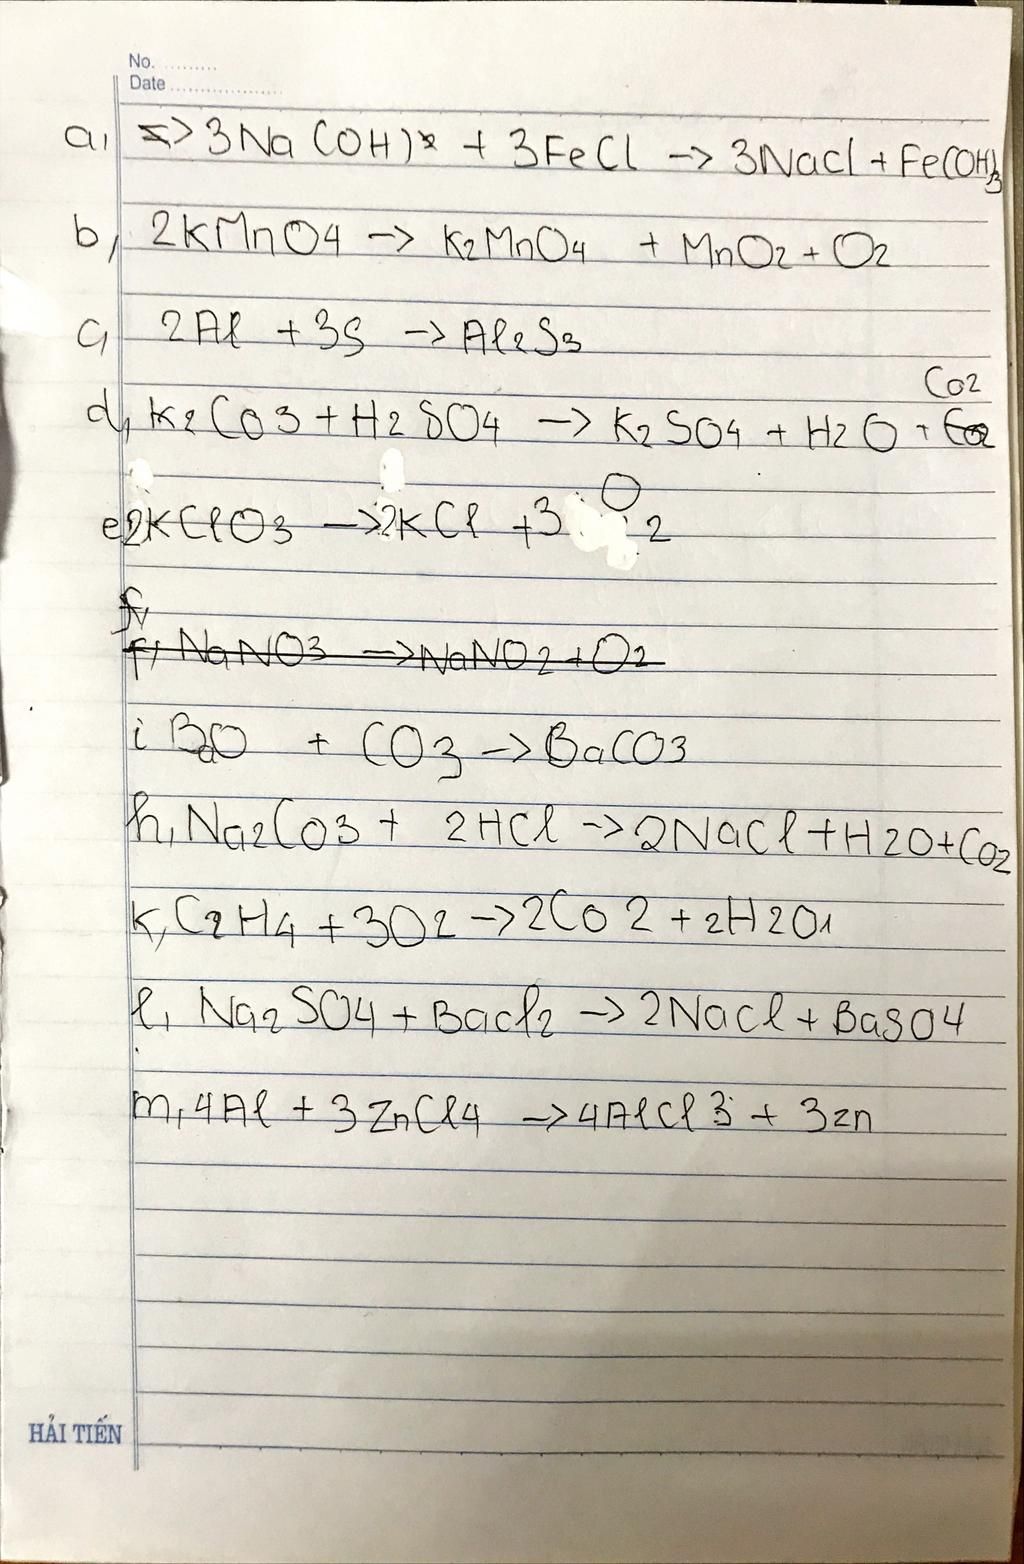 No. .........
Date ...................
a, => 3Na (OH) + 3FeCl -> 3Nacl + Fe(OH)3
b, 2KMnO4 -> K2MnO4 + MnO2 + O2
c, 2Al + 3S -> Al2S3
Co2
d, K2Co3 + H2SO4 -> K2SO4 + H2O + Co2
e, 2KClO3 -> 2KCl + 3O2
f,
f, NaNO3 -> NaNO2 + O2
i BaO + CO3 -> BaCO3
h, Na2Co3 + 2HCl -> 2NaCl + H2O + Co2
K, C2H4 + 3O2 -> 2Co2 + 2H2O1
l, Na2SO4 + Bacl2 -> 2Nacl + BaSO4
m, 4Al + 3ZnCl4 -> 4AlCl3 + 3zn
HẢI TIẾN